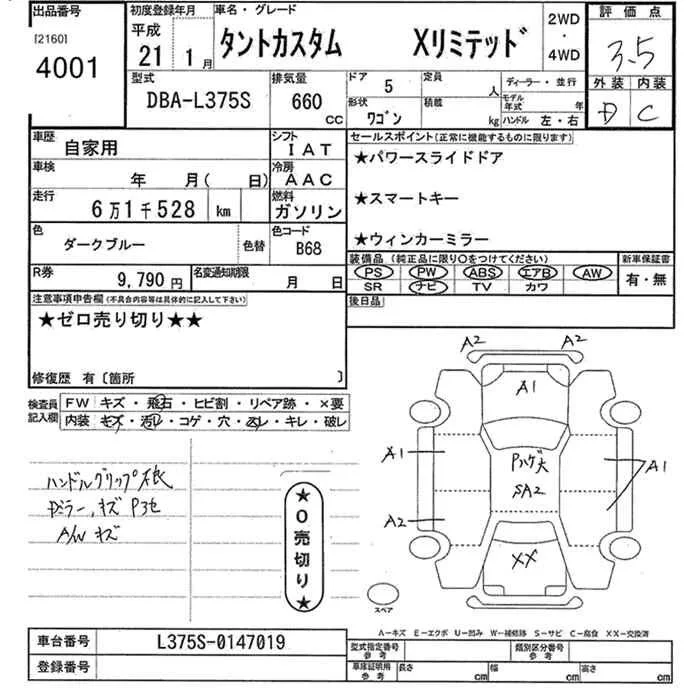 出品番号
[2160]
4001
初度登録年月
平成
21 1月
車名・グレード
タントカスタム Xリミテッド
2WD
・
4WD
評価点
3.5
外装 内装
D C
型式
DBA-L375S
排気量
660
CC
ドア 5
形状 ワゴン
定員 人
積載 kg
ディーラー・並行
モデル年式 年
ハンドル 左・右
車歴 自家用
シフト IAT
車検 年 月( 日)
冷房 AAC
走行 6万1千528 km
燃料 ガソリン
色 ダークブルー 色替
色コード B68
R券 9,790円
名変通知期限 月 日
セールスポイント(正常に機能するものに限ります)
★パワースライドドア
★スマートキー
★ウィンカーミラー
装備品(純正品に限り○をつけてください)
PS PW ABS エアB AW
SR ナビ TV カワ
新車保証書
有・無
後日品
注意事項申告欄(不具合内容等は具体的に記入して下さい)
★ゼロ売り切り★★
修復歴 有〔箇所 〕
検査員記入欄
FW キズ・飛石・ヒビ割・リペア跡・×要
内装 キズ・汚レ・コゲ・穴・スレ・キレ・破レ
ハンドルグリップ
キズ
A/W キズ
★0売切り★
A2 A2
A1
A1
Pハゲ大
SA2
A1
A2
XX
スペア
A-キズ E-エクボ U-凹み W-補修跡 S-サビ C-腐食 XX-交換済
車台番号 L375S-0147019
登録番号
型式指定番号
参考
類別区分番号
参考
車庫証明用
参考
長さ cm
幅 cm
高さ cm